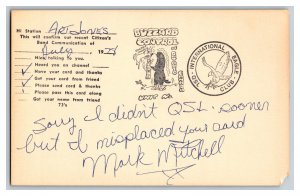 Hi Station Art Jones
This will confirm our recent Citizen's
Band Communication of
July 1978
Nice talking to you
Heard you on channel
Have your card and thanks
Got your card from friend
Please send card & thanks
Please pass this card along
Got your name from friend
73's
BUZZARD
CONTROL
UNIT 62
INTERNATIONAL EAGLE
CLUB, INC.
Sorry I didn't QSL sooner
but I misplaced your card
Mark Mitchell